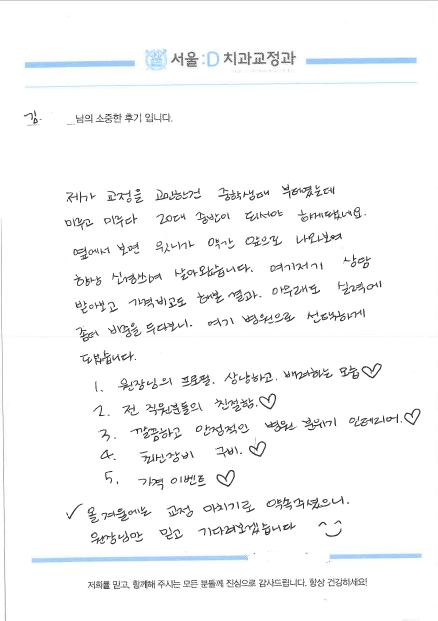 서울:D 치과교정과
김. 님의 소중한 후기 입니다.
제가 교정을 고민한건 중학생때 부터였는데
미루고 미루다 20대 중반이 되서야 하게되었네요.
옆에서 보면 윗니가 약간 앞으로 나와보여
항상 신경쓰며 살아왔습니다. 여기저기 상담
받아보고 가격비교도 해본 결과. 아무래도 실력에
좀더 비중을 두다보니. 여기 병원으로 선택하게
되었습니다.
1. 원장님의 프로필. 상냥하고. 배려하는 모습♡
2. 전 직원분들의 친절함.♡
3. 깔끔하고 안정적인 병원 분위기 인테리어.♡
4. 최신장비 구비.♡
5. 가격 이벤트 ♡
✓ 올 겨울에는 교정 마치기로 약속주셨으니.
원장님만 믿고 기다려보겠습니다
저희를 믿고, 함께해 주시는 모든 분들께 진심으로 감사드립니다. 항상 건강하세요!